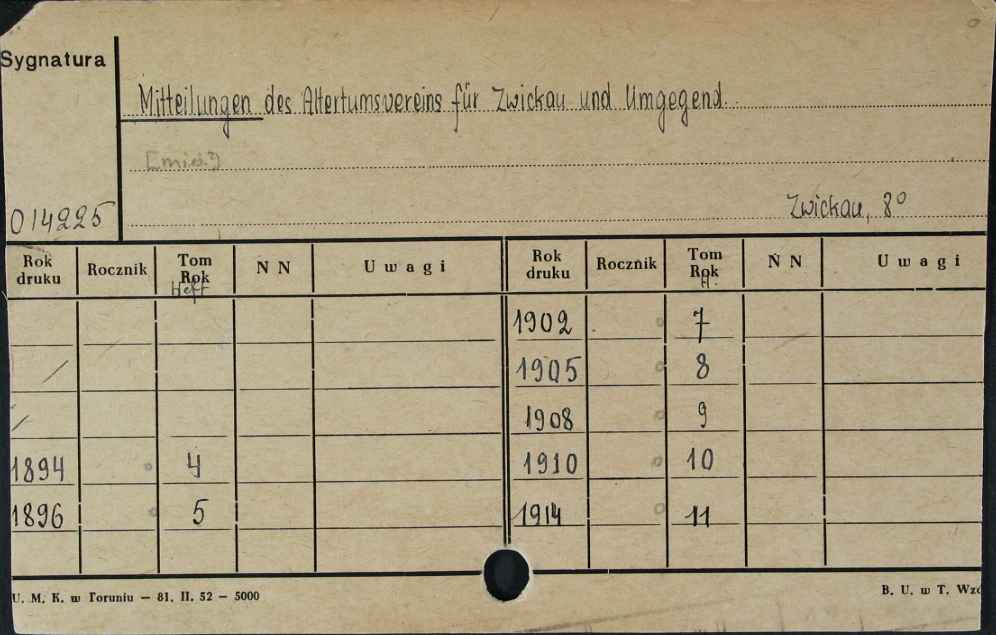 Sygnatura
Mitteilungen des Altertumsvereins für Zwickau und Umgegend.
Zwickau, 8º
014225
Rok druku Rocznik Tom Rok N N Uwagi Rok druku Rocznik Tom Rok N N Uwagi
Heft H.
1902 7
1905 8
1908 9
1894 4 1910 10
1896 5 1914 11
U. M. K. w Toruniu — 81. II. 52 — 5000
B. U. w T. Wzó